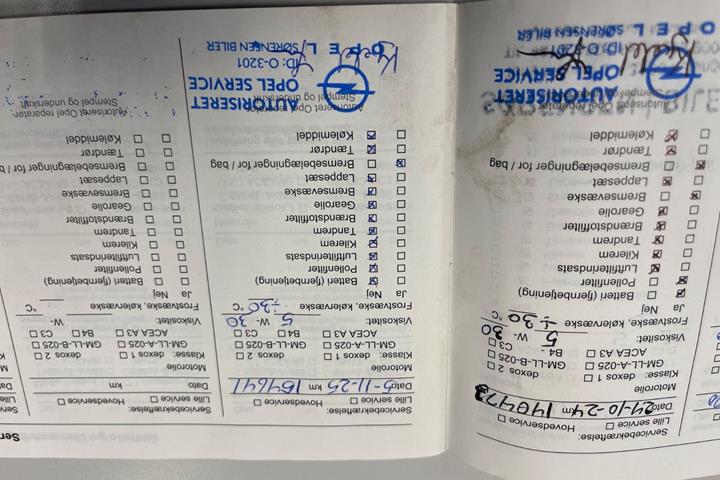 Servicebekræftelse:
Lille service ☐ Hovedservice ☐
Dato 24-10-24 km 140473
Motorolie
Klasse: dexos 1 ☐ dexos 2 ☐
GM-LL-A-025 ☐ GM-LL-B-025 ☐
ACEA A3 ☐ B4 - C3 ☐
Viskositet: 5 W- 30
Frostvæske, kølervæske ÷ 30 °C
Ja Nej
Batteri (fjernbetjening)
Pollenfilter
Luftfilterindsats
Kilerem
Tandrem
Brændstoffilter
Gearolie
Bremsevæske
Lappesæt
Bremsebelægninger for / bag
Tændrør
Kølemiddel
Autoriseret Opel reparatør:
AUTORISERET
OPEL SERVICE
ID: O-3201
SØRENSEN BILER
OPEL
Servicebekræftelse:
Lille service ☐ Hovedservice ☐
Dato 5-11-25 km 154641
Motorolie
Klasse: dexos 1 ☐ dexos 2 ☐
GM-LL-A-025 ☐ GM-LL-B-025 ☐
ACEA A3 ☐ B4 ☐ C3 ☐
Viskositet: 5 W- 30
Frostvæske, kølervæske ÷30 °C
Ja Nej
Batteri (fjernbetjening)
Pollenfilter
Luftfilterindsats
Kilerem
Tandrem
Brændstoffilter
Gearolie
Bremsevæske
Lappesæt
Bremsebelægninger for / bag
Tændrør
Kølemiddel
Autoriseret Opel reparatør:
Stempel og underskrift
AUTORISERET
OPEL SERVICE
ID: O-3201
SØRENSEN BILER
OPEL
Servicebekræftelse:
Lille service ☐ Hovedservice ☐
Dato km
Motorolie
Klasse: dexos 1 ☐ dexos 2 ☐
GM-LL-A-025 ☐ GM-LL-B-025 ☐
ACEA A3 ☐ B4 ☐ C3 ☐
Viskositet: W-
Frostvæske, kølervæske °C
Ja Nej
Batteri (fjernbetjening)
Pollenfilter
Luftfilterindsats
Kilerem
Tandrem
Brændstoffilter
Gearolie
Bremsevæske
Lappesæt
Bremsebelægninger for / bag
Tændrør
Kølemiddel
Autoriseret Opel reparatør:
Stempel og underskrift